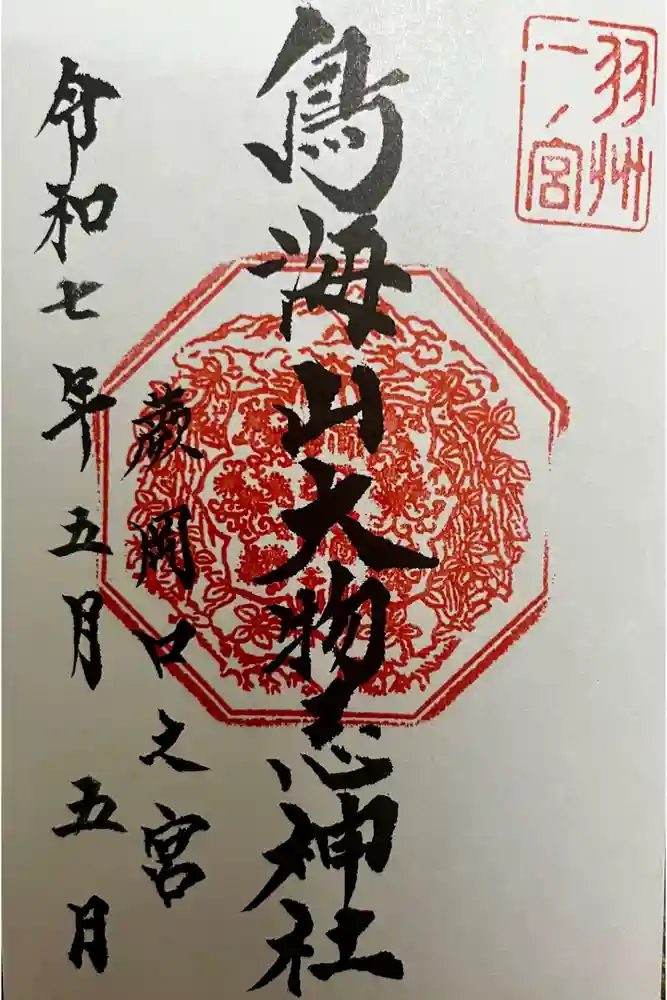 羽州
一ノ宮
鳥海山大物忌神社
蕨岡口之宮
令和七年五月五月